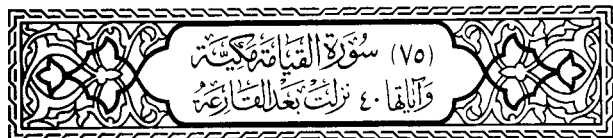 (٧٥) سُورَة القِيَامَة مَكِيَّة
وَآيَاتِهَا ٤٠ نَزَلَتْ بَعْدَ القَارِعَة